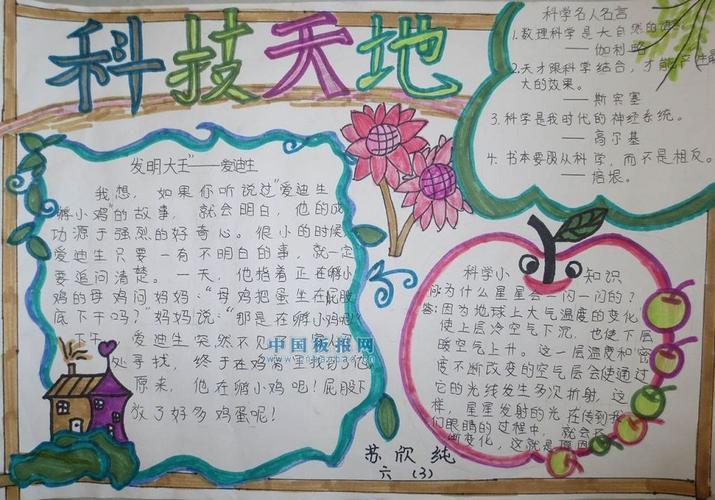 科技天地
科学名人名言
1.数理科学是大自然的语
——伽利略
2.天才跟科学结合,才能产生最
大的效果。
——斯宾塞
3.科学是我时代的神经系统。
——高尔基
4.书本要服从科学,而不是相反。
——培根。
发明大王"——爱迪生
我想,如果你听说过"爱迪生
孵小鸡"的故事,就会明白,他的成
功源于强烈的好奇心。很小的时候,
爱迪生只要一有不明白的事,就一定
要追问清楚。一天,他指着正在孵小
鸡的母鸡问妈妈:"母鸡把蛋坐在屁股
底下干吗?"妈妈说:"那是在孵小鸡呢!
下午,爱迪生突然不见了
处寻找,终于在鸡
原来,他在孵小鸡吧!屁股下
放了好多鸡蛋呢!
中国板报网
科学小知识
问为什么星星会一闪一闪的?
答:因为地球上大气温度的变化
使上层冷空气下沉,也使下层
暖空气上升。这一层温度和密
度不断改变的空气层会使通过
它的光线发生多次折射,这
样,星星发射的光在传到我
们眼睛的过程中,就会
断变化,这就是原因
苏欣纯
六(3)